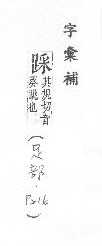 字彙補
踩 其規切音
葵跳也
(足部.P216)